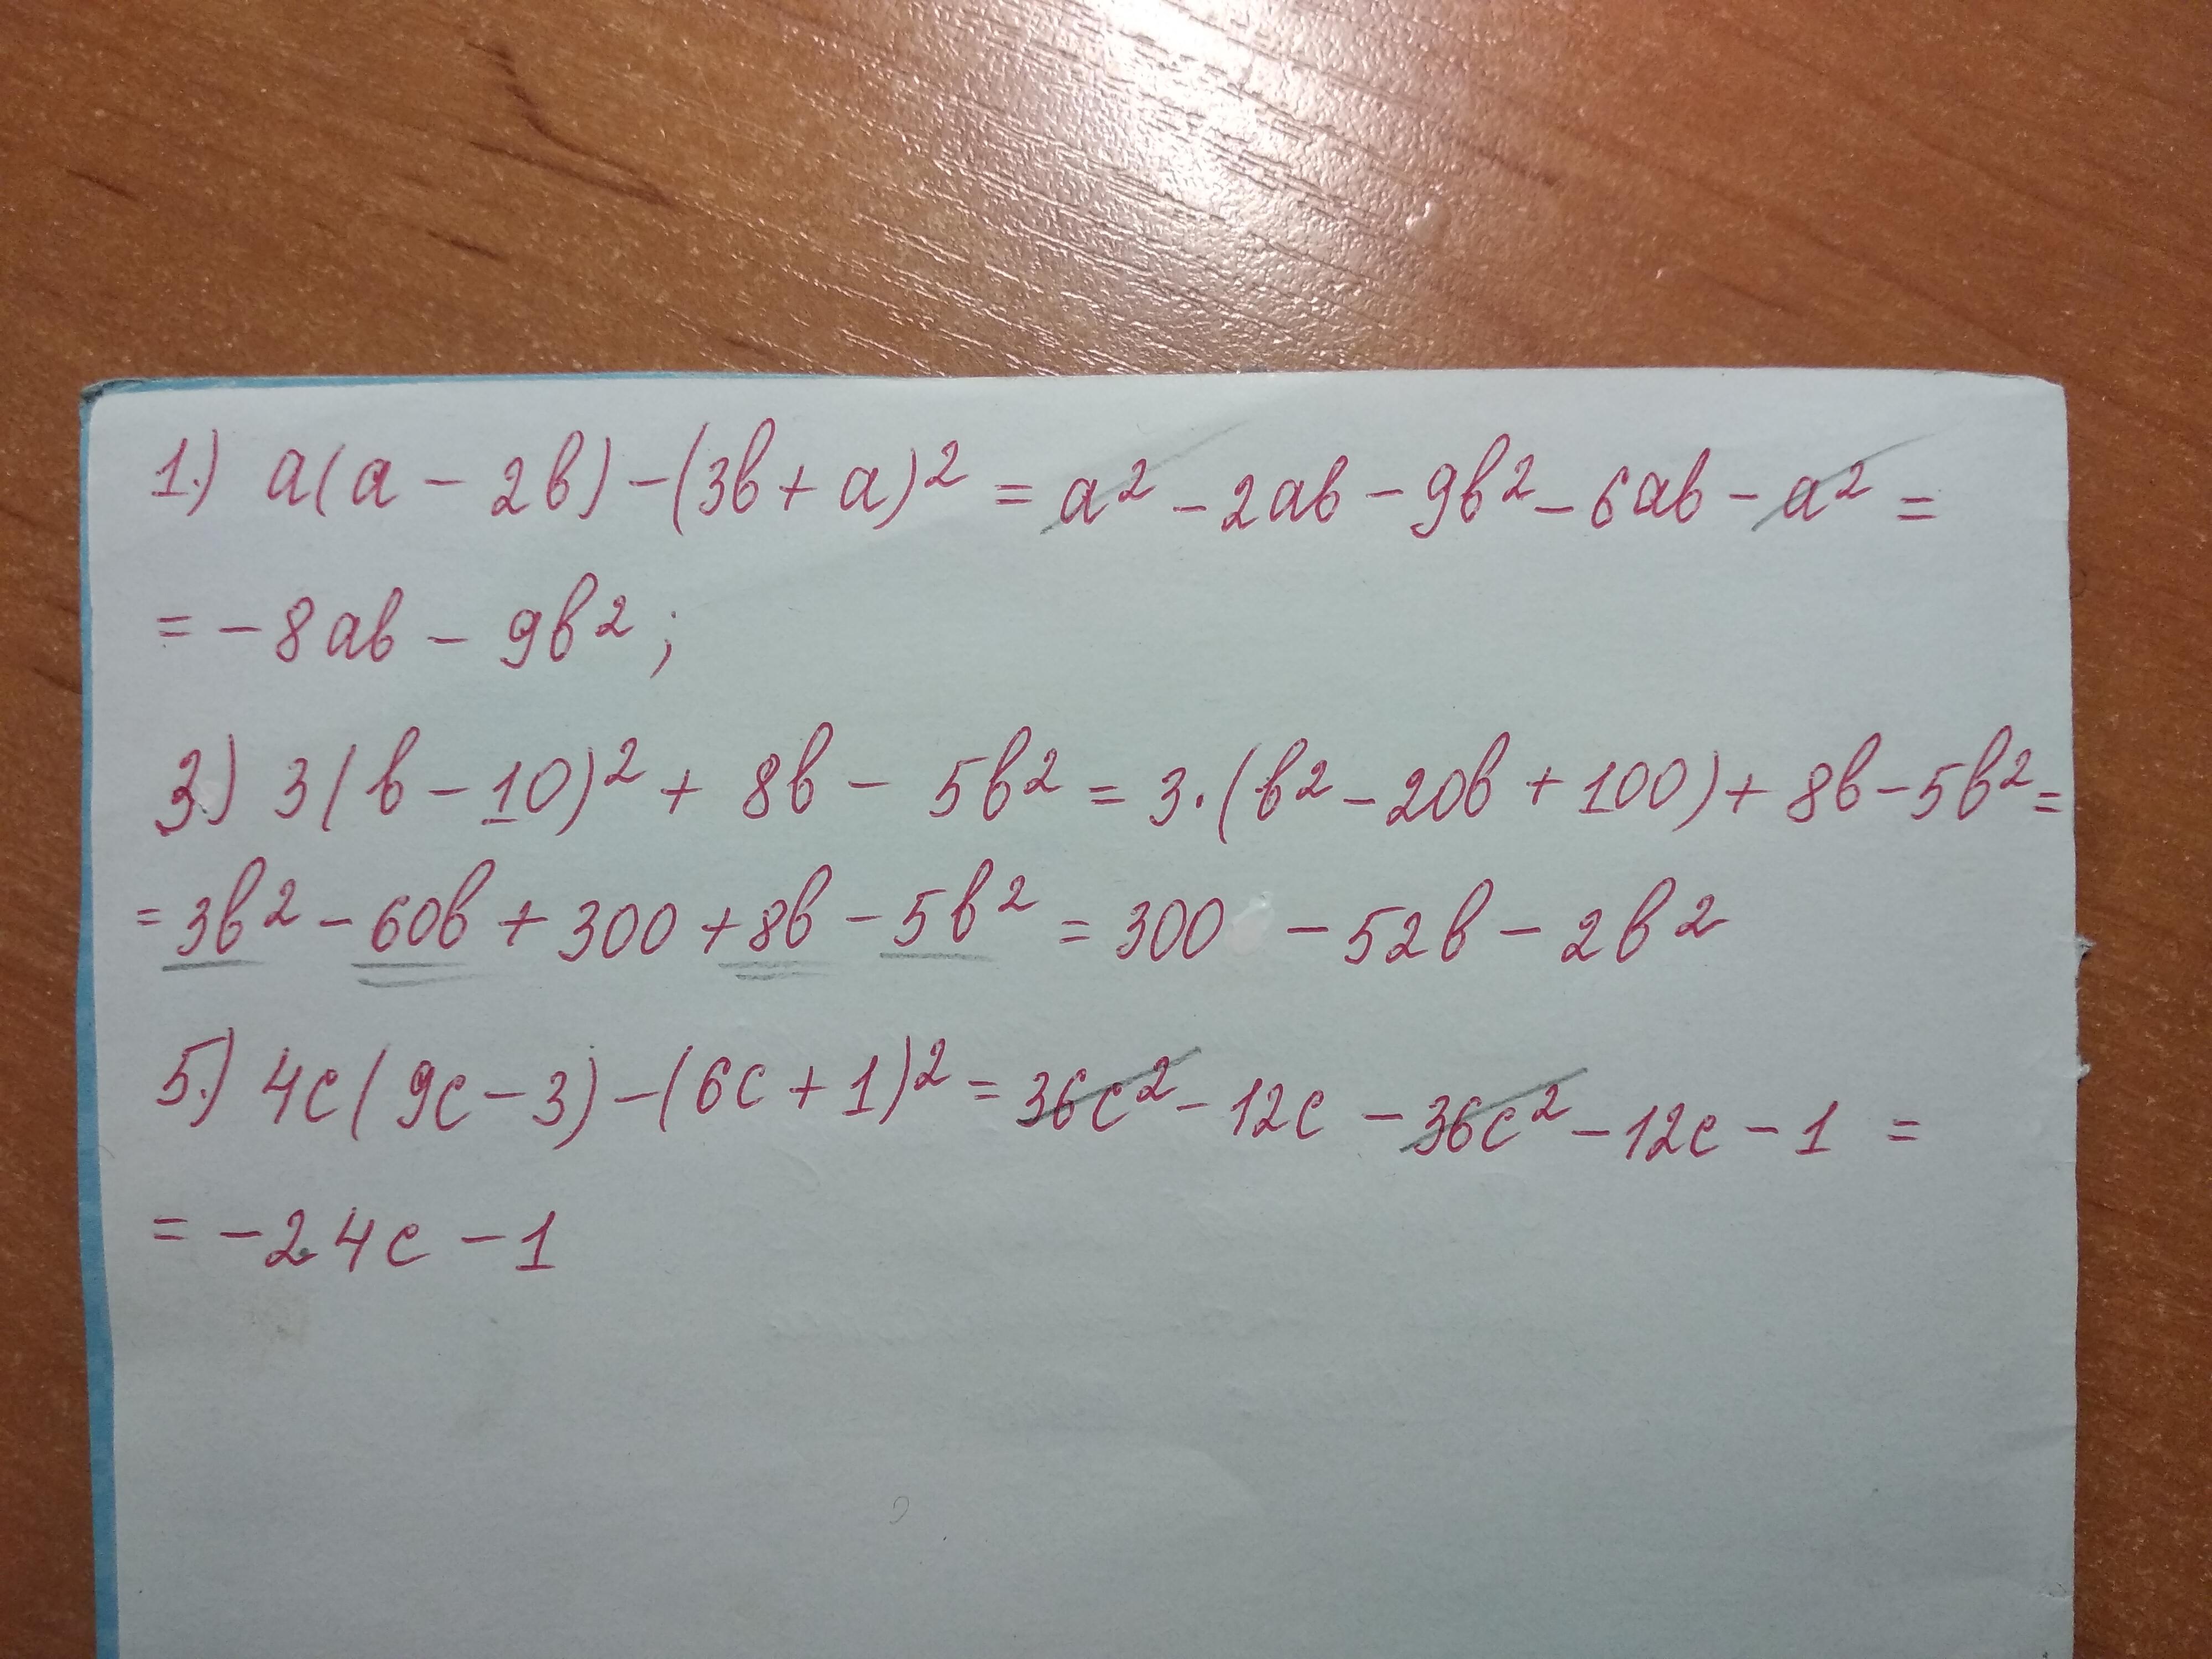 1.) a(a - 2b) - (3b + a)² = a² - 2ab - 9b² - 6ab - a² =
= - 8ab - 9b² ;
3) 3(b - 10)² + 8b - 5b² = 3·(b² - 20b + 100) + 8b - 5b² =
= 3b² - 60b + 300 + 8b - 5b² = 300 - 52b - 2b²
5.) 4c(9c - 3) - (6c + 1)² = 36c² - 12c - 36c² - 12c - 1 =
= - 24c - 1